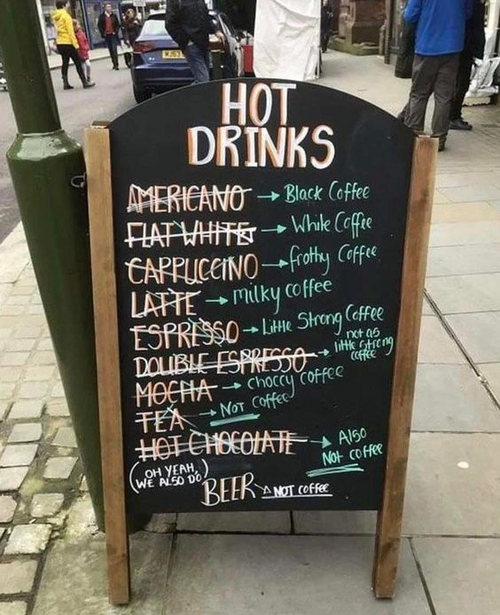 HOT
DRINKS
AMERICANO → Black Coffee
FLAT WHITE → White Coffee
CAPPUCCINO → frothy Coffee
LATTE → milky coffee
ESPRESSO → Little Strong Coffee
DOUBLE ESPRESSO → not as little strong coffee
MOCHA → choccy coffee
TEA → NOT coffee
HOT CHOCOLATE → Also
Not coffee
(OH YEAH,
WE ALSO DO)
BEER NOT coffee